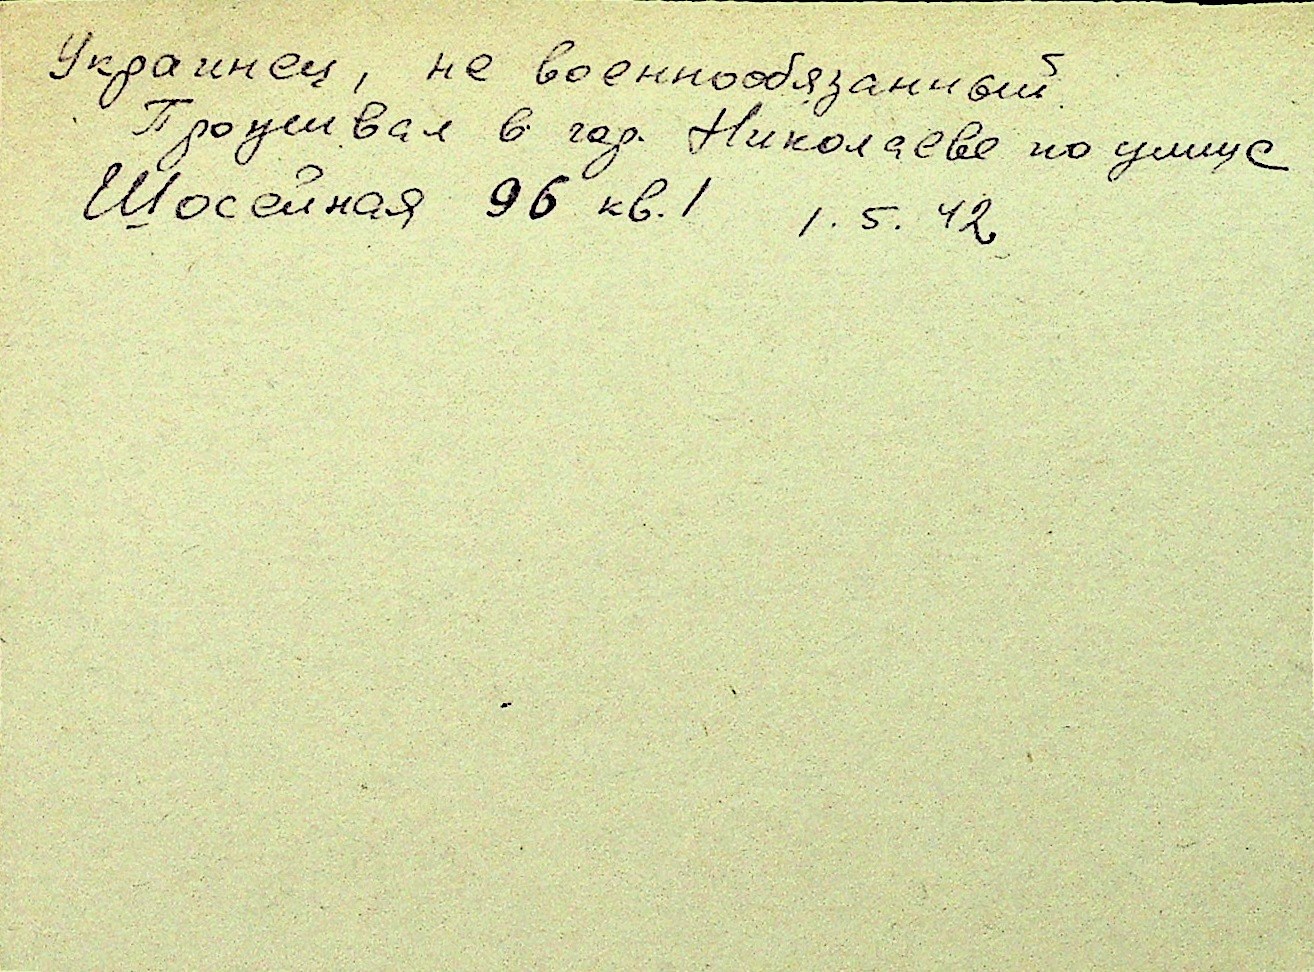 Украинец, не военнообязанный.
Проживал в гор. Николаеве по улице
Шосейная 96 кв. 1 1. 5. 42